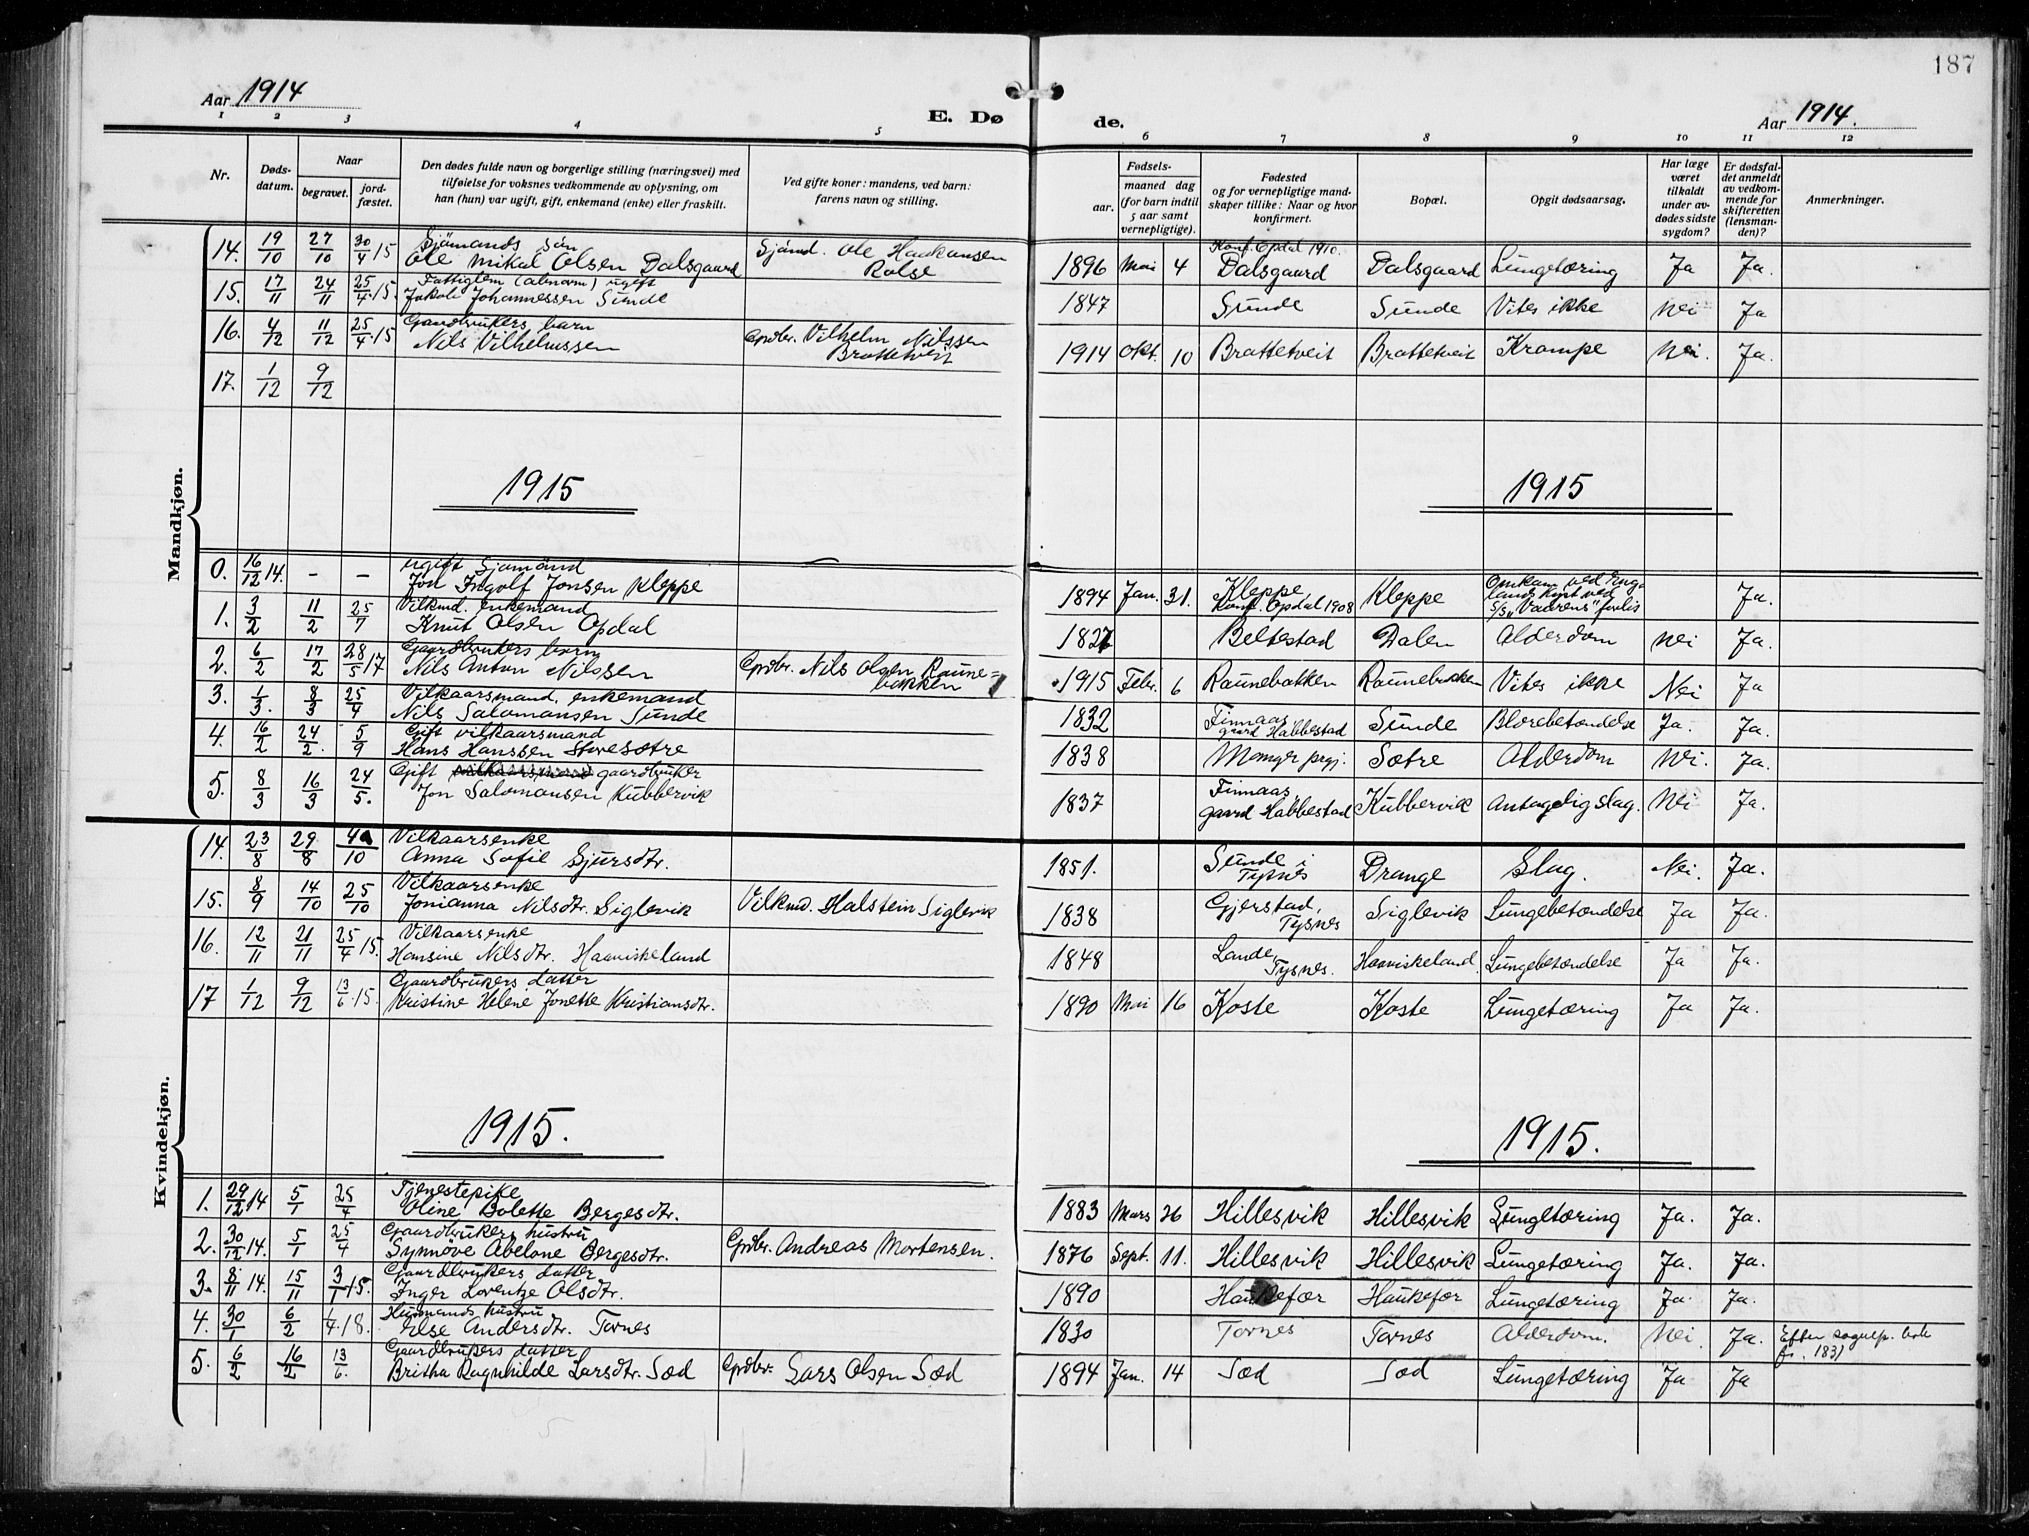 187
Aar 1914
E. Dø
de.
Aar 1914.
1 2 3 4 5 6 7 8 9 10 11 12
Nr.
Døds-
datum.
Naar
begravet.
jord-
fæstet.
Den dødes fulde navn og borgerlige stilling (næringsvei) med
tilføielse for voksnes vedkommende av oplysning, om
han (hun) var ugift, gift, enkemand (enke) eller fraskilt.
Ved gifte koner: mandens, ved barn:
farens navn og stilling.
Fødsels-
aar.
maaned dag
(for barn indtil
5 aar samt
vernepligtige).
Fødested
og for vernepligtige mand-
skaper tillike: Naar og hvor
konfirmert.
Bopæl.
Opgit dødsaarsag.
Har læge
været
tilkaldt
under av-
dødes sidste
sygdom?
Er dødsfal-
det anmeldt
av vedkom-
mende for
skifteretten
(lensman-
den)?
Anmerkninger.
Mandkjøn.
14. 19/10 27/10 30/4 15 Sjömands sön Ole Mikal Olsen Dalsgaard Sjömd. Ole Haukansen Rolse 1896 Mai 4 Konf. Opdal 1910. Dalsgaard Dalsgaard Lungetæring Ja Ja.
15. 17/11 24/11 25/4 15. Fattiglem (abnorm) ugift Jakob Johannessen Sunde 1847 Sunde Sunde Vites ikke Nei Ja
16. 4/12 11/12 25/4 15 Gaardbrukers barn Nils Vilhelmssen Grdbr. Vilhelm Nilssen Brattetveit 1914 Okt. 10 Brattetveit Brattetveit Krampe Nei. Ja.
17. 1/12 9/12
1915 1915
0. 16/12 14. - - ugift Sjømand Jon Ingolf Jonsen Kleppe 1894 Jan. 31. Kleppe Konf. Opdal 1908 Kleppe Omkom ved Eng- lands kyst ved S/S "Vaarens" forlis Ja.
1. 3/2 11/2 25/7 Vilkmd. enkemand Knut Olsen Opdal 1827 Beltestad Dalen Alderdom Nei Ja.
2. 6/2 17/2 28/5 17 Gaardbrukers barn Nils Anton Nilssen Grdbr. Nils Olsen Raune= bakken 1915 Febr. 6 Raunebakken Raunebakken Vites ikke Nei Ja
3. 1/3. 8/3 25/4 Vilkaarsmand, enkemand Nils Salomonsen Sunde 1832 Finnaas gaard Habbestad Sunde Blærebetændelse Ja. Ja.
4. 16/2 24/2. 5/9 Gift vilkaarsmand Hans Hanssen Storesætre 1838 Manger prgj. Sætre Alderdom Nei. Ja.
5. 8/3 16/3 24/5. Gift vilkaarsmand gaardbruker Jon Salomonsen Kubbervik 1837 Finnaas gaard Habbestad Kubbervik Antagelig slag. Nei Ja.
Kvindekjøn.
14. 23/8 29/8 4/10 Vilkaarsenke Anna Sofie Sjursdtr. 1851. Sunde i Tysnes Drange Slag. Nei. Ja.
15. 8/9 14/10 25/10 Vilkaarsenke Jonianna Nilsdtr. Siglevik Vilkmd. Halstein Siglevik 1838 Gjerstad, Tysnes Siglevik Lungebetændelse Ja Ja.
16. 12/11 21/11 25/4 15. Vilkaarsenke Hansine Nilsdtr. Haaviskeland 1848 Lande Tysnes. Haaviskeland Lungebetændelse Ja Ja.
17 1/12 9/12 13/6 15. Gaardbrukers datter Kristine Helene Jonette Kristiansdtr. 1890 Mai 16 Koste Koste Lungetæring Ja Ja.
1915. 1915.
1. 29/12 14 5/1 25/4 Tjenestepike Oline Bolette Bergesdtr. 1883 Mars 26 Hillesvik Hillesvik Lungetæring Ja. Ja.
2. 30/12 14. 5/1 25/4 Gaardbrukers hustru Synnöve Abelone Bergesdtr. Grdbr. Andreas Mortensen. 1876 Sept. 11. Hillesvik Hillesvik Lungetæring Ja. Ja.
3. 8/11 14. 15/11 3/1 15. Gaardbrukers datter Inger Lorentze Olsdtr. 1890 Haukefær Haukefær Lungetæring Ja. Ja.
4. 30/1 6/2 1/4 18. Husmands hustru Else Andersdtr. Tornes 1830 Tornes Tornes Alderdom. Nei. Ja. Efter sognep. bok 1831
5. 6/2 16/2 13/6. Gaardbrukers datter Britha Ragnhilde Larsdtr. Sæd Grdbr. Lars Olsen Sæd 1894 Jan. 14 Sæd Sæd Lungetæring Ja Ja